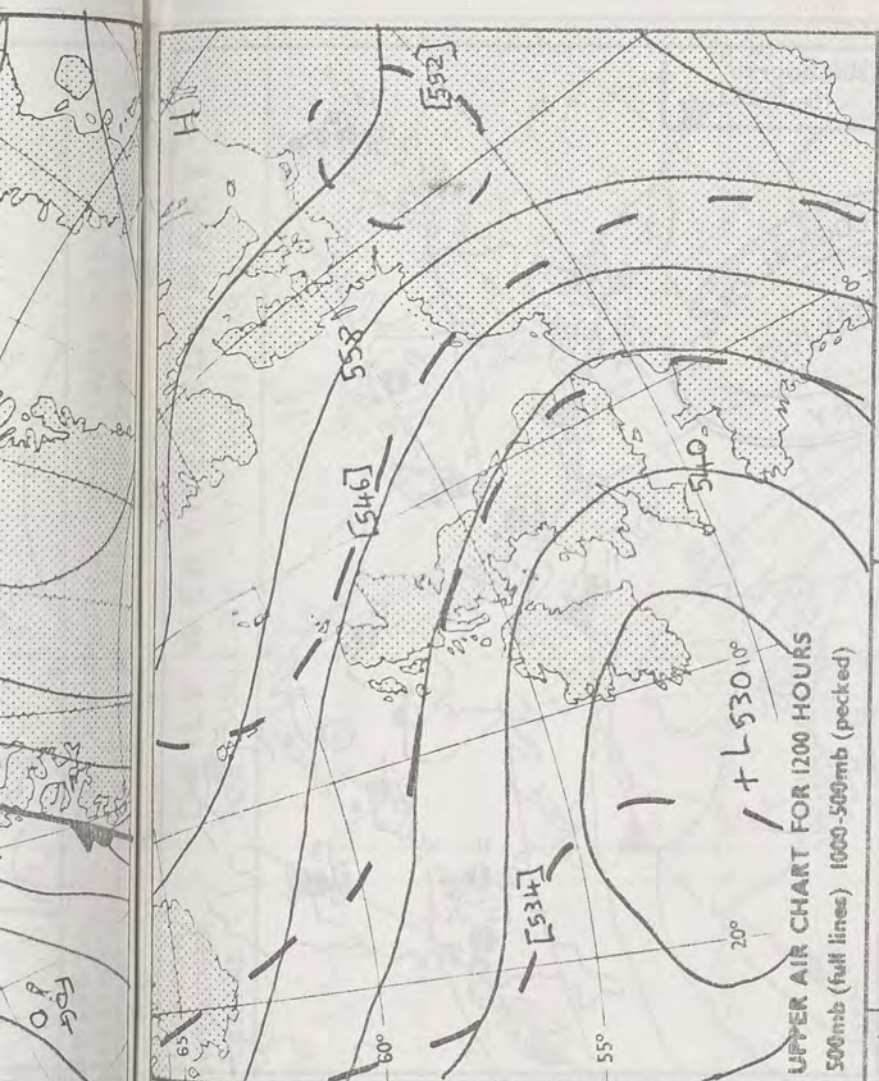 H
[552]
558
[546]
540
[534]
+ L530
10°
20°
0°
65
60°
55°
UPPER AIR CHART FOR 1200 HOURS
500mb (full lines) 1000-500mb (pecked)